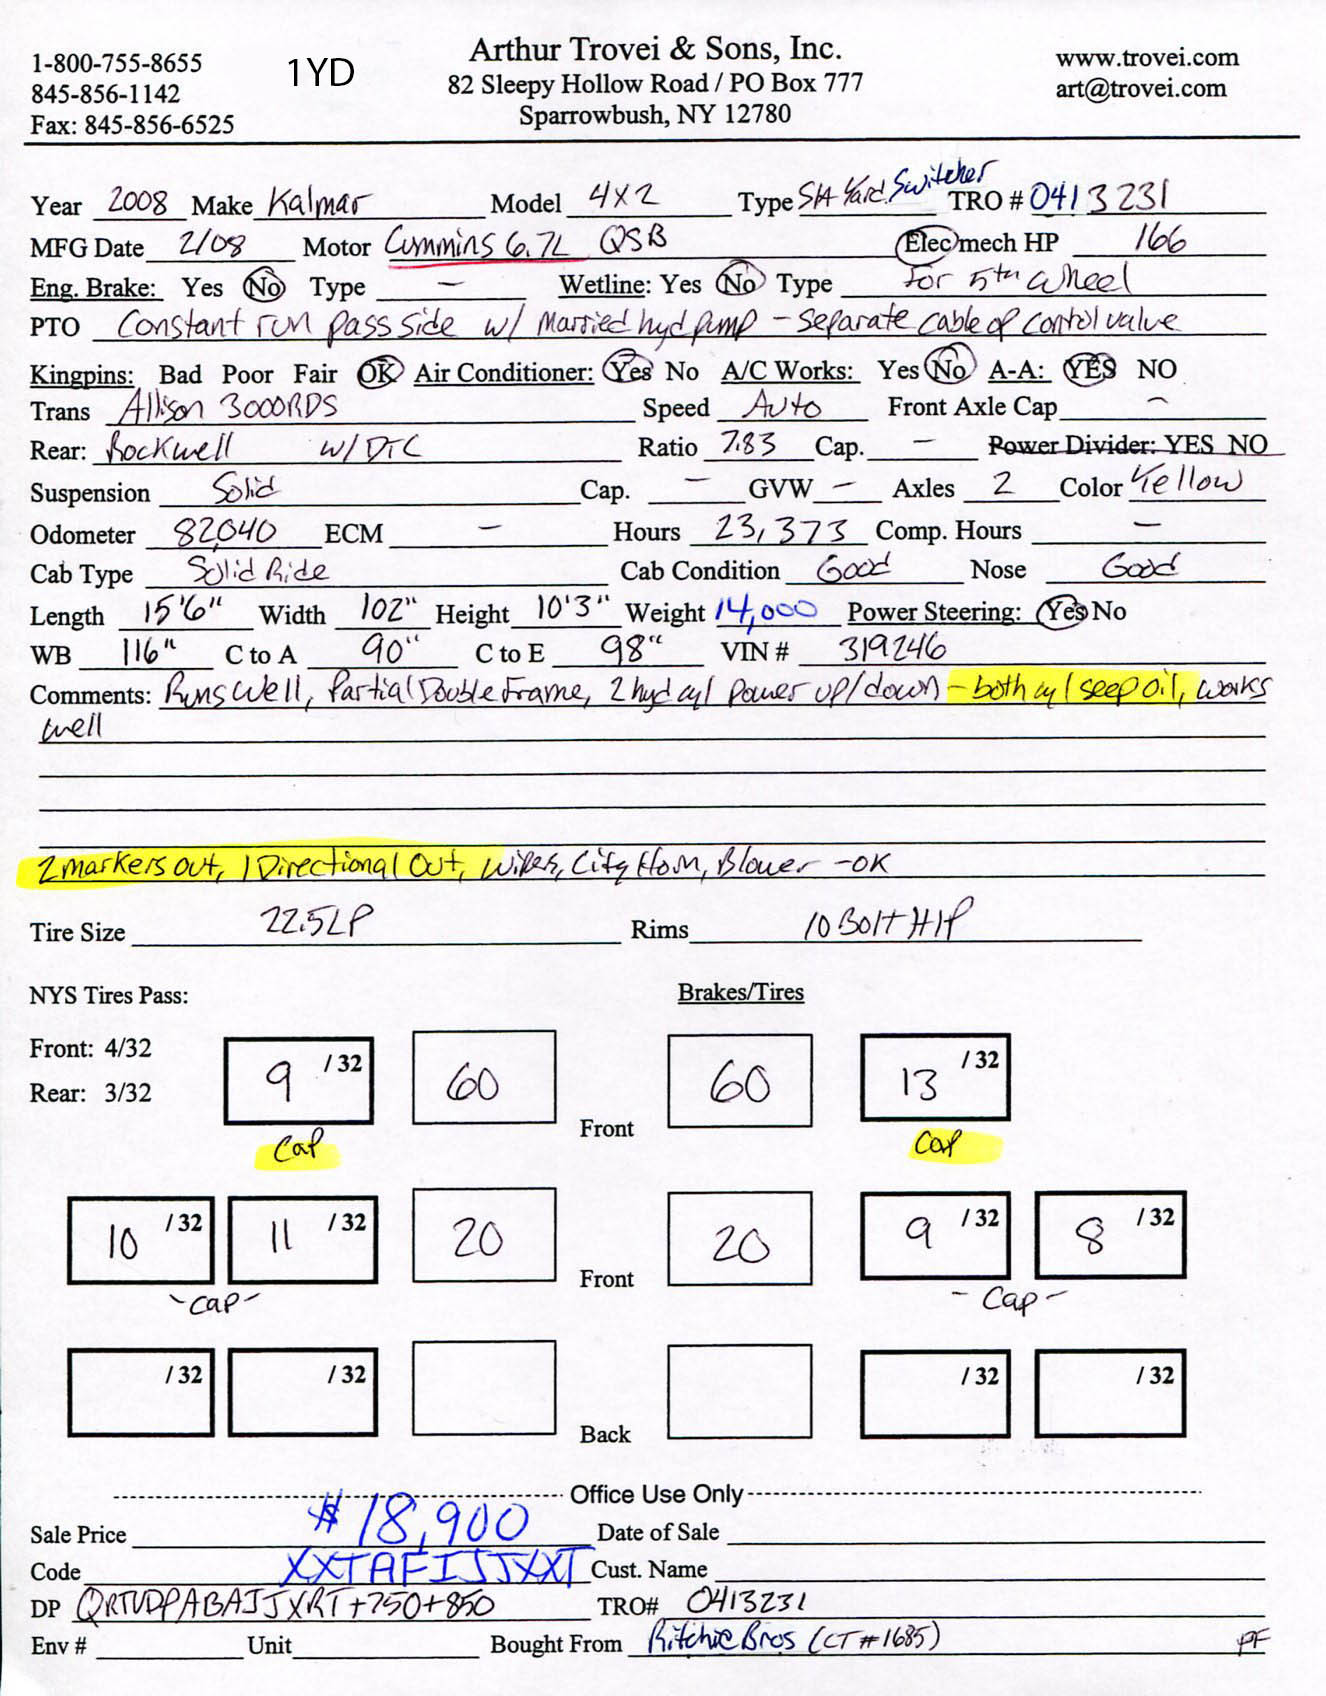 1-800-755-8655 1YD Arthur Trovei & Sons, Inc. www.trovei.com
845-856-1142 82 Sleepy Hollow Road / PO Box 777 art@trovei.com
Fax: 845-856-6525 Sparrowbush, NY 12780
Year 2008 Make Kalmar Model 4x2 Type S/A Yard Switcher TRO # 0413231
MFG Date 2/08 Motor Cummins 6.7L QSB Elec mech HP 166
Eng. Brake: Yes No Type - Wetline: Yes No Type For 5th wheel
PTO Constant run pass side w/ Married hyd pump - separate cable op control valve
Kingpins: Bad Poor Fair OK Air Conditioner: Yes No A/C Works: Yes No A-A: YES NO
Trans Allison 3000RDS Speed Auto Front Axle Cap -
Rear: Rockwell w/DTC Ratio 7.83 Cap. - Power Divider: YES NO
Suspension Solid Cap. - GVW - Axles 2 Color Yellow
Odometer 82,040 ECM - Hours 23,373 Comp. Hours -
Cab Type Solid Ride Cab Condition Good Nose Good
Length 15'6" Width 102" Height 10'3" Weight 14,000 Power Steering: Yes No
WB 116" C to A 90" C to E 98" VIN # 319246
Comments: Runs Well, Partial Double Frame, 2 hyd cyl power up/down - both cyl seep oil, works
well
2 markers out, 1 Directional Out, Wipers, City Horn, Blower - OK
Tire Size 22.5LP Rims 10 Bolt H/P
NYS Tires Pass: Brakes/Tires
Front: 4/32 9 /32 60 Front 60 13 /32
Rear: 3/32
Cap Cap
10 /32 11 /32 20 Front 20 9 /32 8 /32
-Cap- -Cap-
/32 /32 Back /32 /32
Office Use Only
Sale Price $18,900 Date of Sale
Code XXTAFIJJXXT Cust. Name
DP QRTUDPABAJJXRT+750+850 TRO# 0413231
Env # Unit Bought From Ritchie Bros (CT #1685) PF